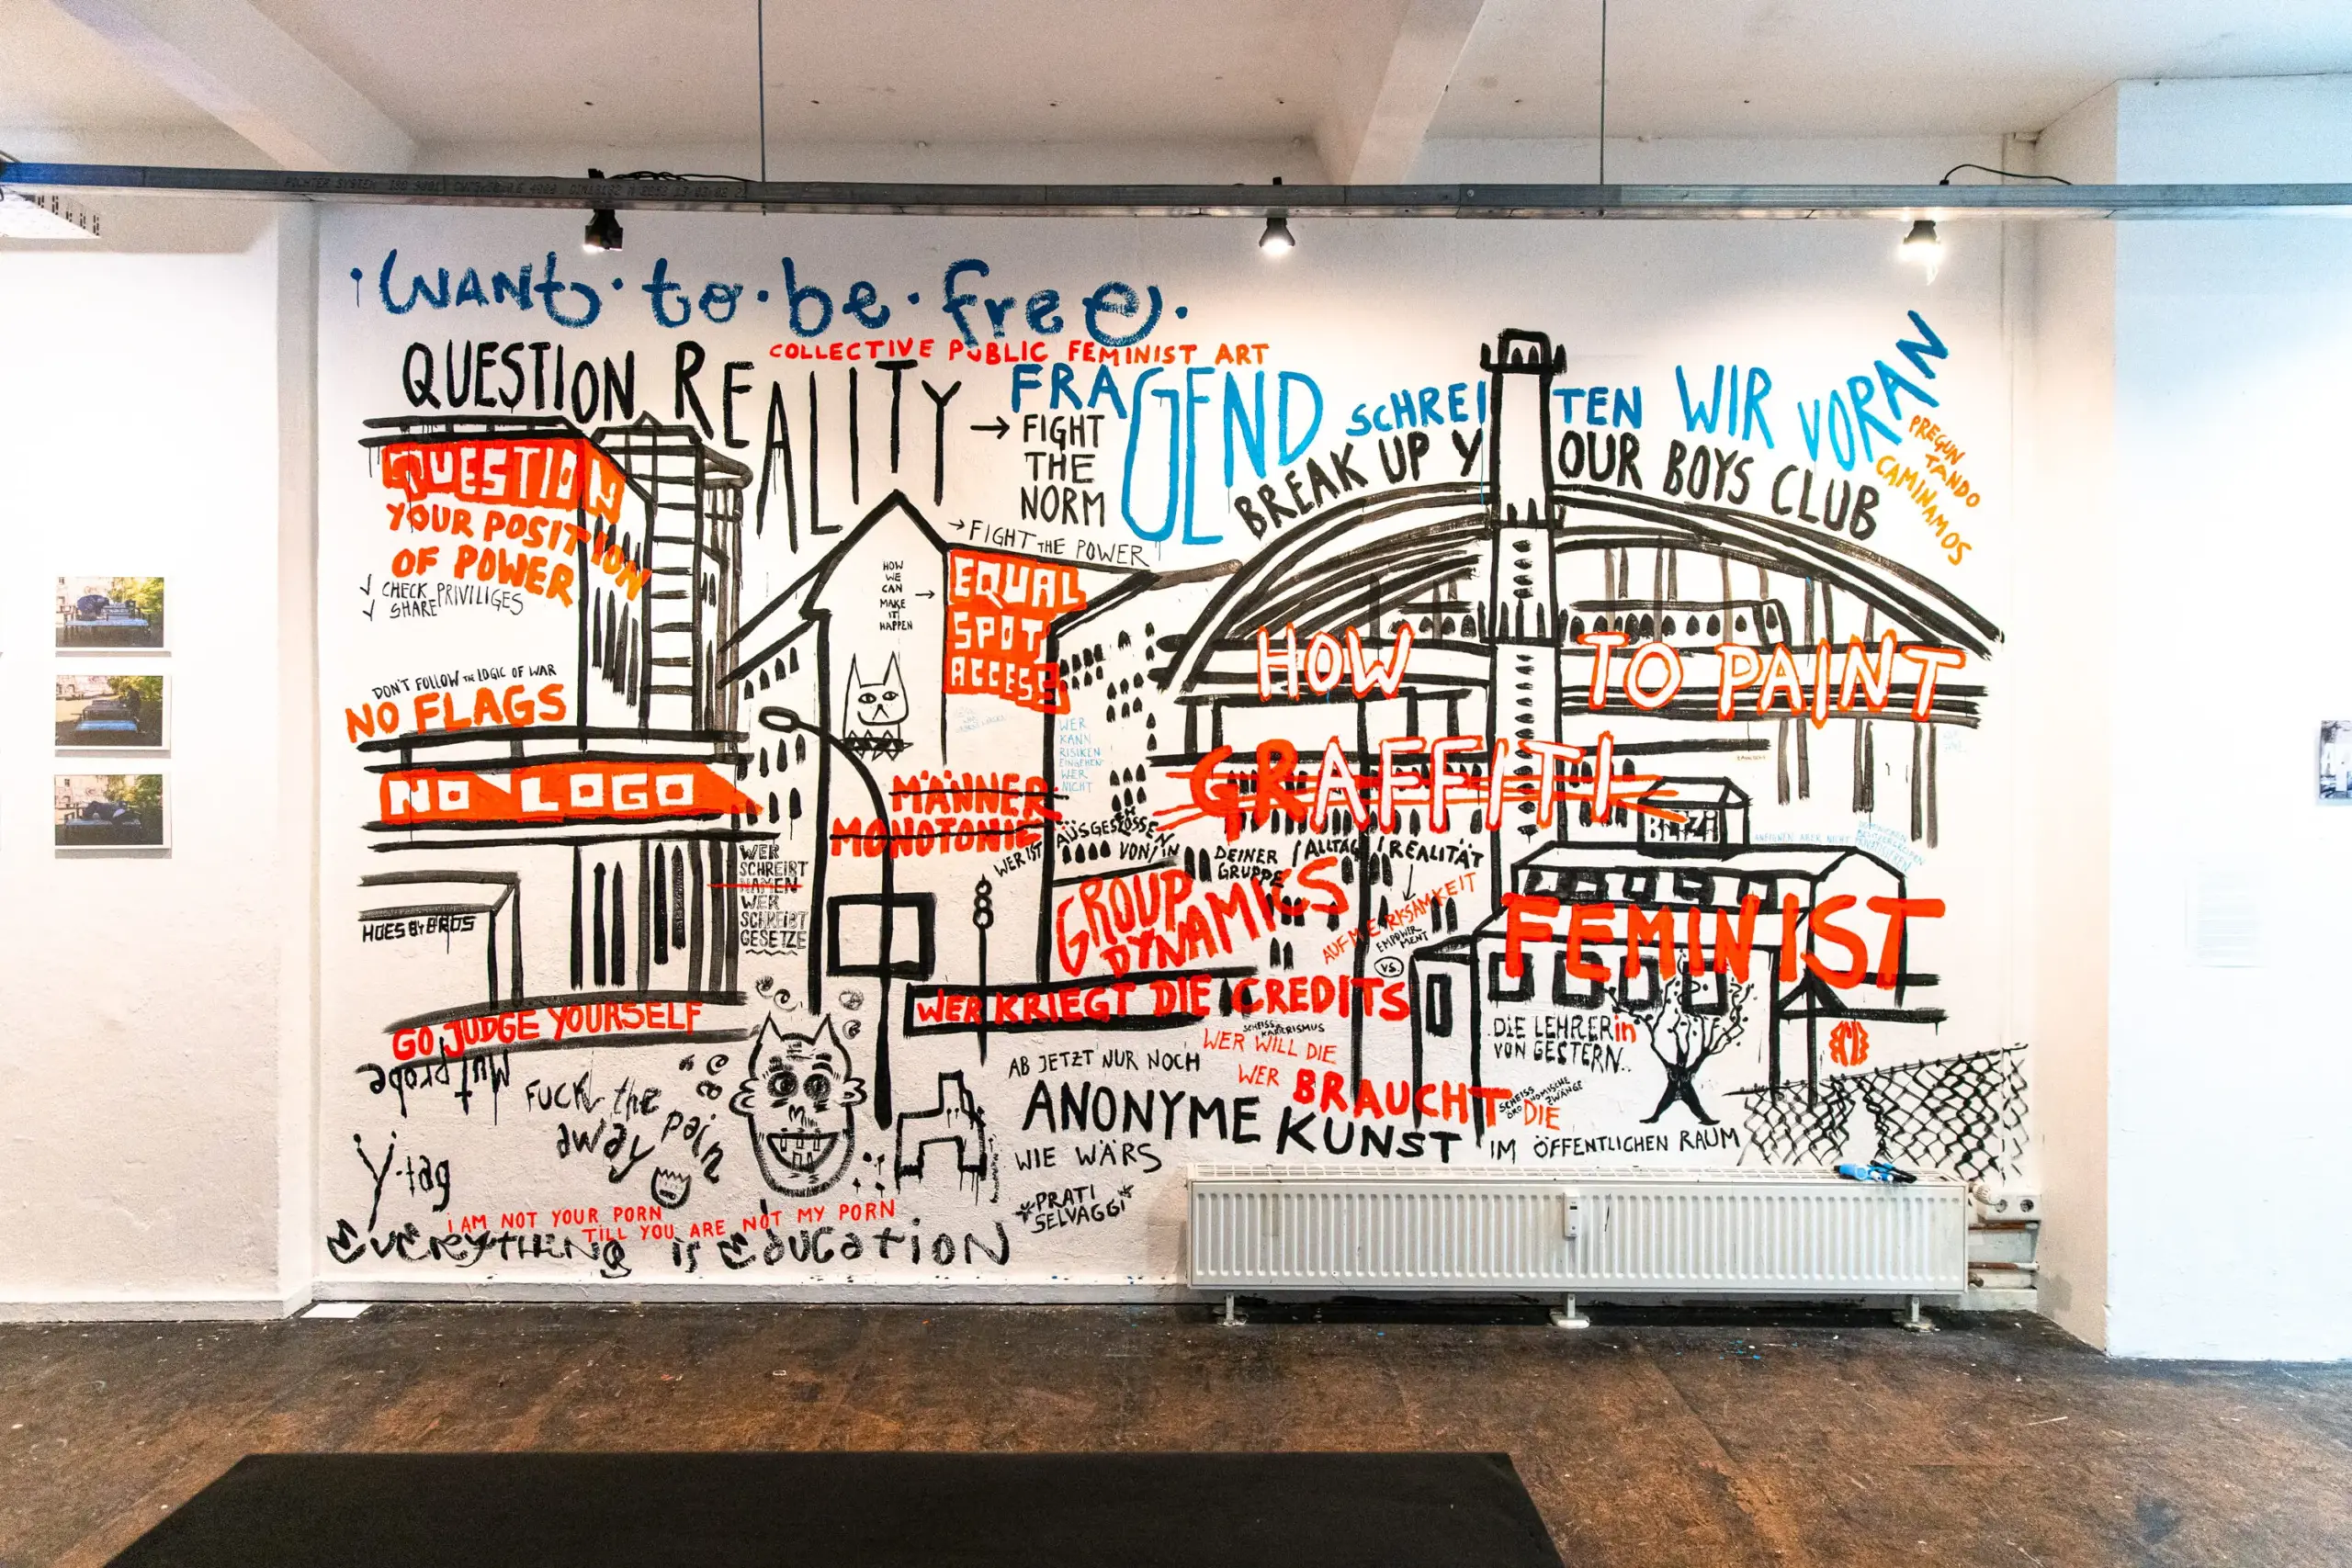 i WANt · to · be · free ·
COLLECTIVE PUBLIC FEMINIST ART
QUESTION REALITY
FRAGEND SCHREITEN WIR VORAN
PREGUN
TANDO
CAMINAMOS
→ FIGHT
THE
NORM
BREAK UP YOUR BOYS CLUB
→ FIGHT THE POWER
QUESTION
YOUR POSITION
OF POWER
✓ CHECK PRIVILIGES
✓ SHARE
HOW
WE
CAN
MAKE
IT
HAPPEN
→
EQUAL
SPOT
ACCESS
DON'T FOLLOW THE LOGIC OF WAR
NO FLAGS
NO LOGO
HOW TO PAINT
GRAFFITI
FEMINIST
WER
KANN
RISIKEN
EINGEHEN
WER
NICHT
MÄNNER
MONOTONIE
WER
SCHREIBT
NAMEN
WER
SCHREIBT
GESETZE
WER IST AUSGESTOSSEN
VON/IN DEINER
GRUPPE / ALLTAG / REALITÄT
GROUP
DYNAMICS
AUFMERKSAMKEIT
EMPOWER
MENT
VS.
HOES BY BROS
WER KRIEGT DIE CREDITS
WER WILL DIE
WER BRAUCHT DIE
SCHEISS
ÖKONOMISCHE
ZWÄNGE
DIE LEHRERin
VON GESTERN..
GO JUDGE YOURSELF
Mutprobe
FUCK the
away pain
AB JETZT NUR NOCH
ANONYME KUNST IM ÖFFENTLICHEN RAUM
WIE WÄRS
*PRATI
SELVAGGI*
Y-tag
I AM NOT YOUR PORN
TILL YOU ARE NOT MY PORN
EVERYTHING is EducatioN